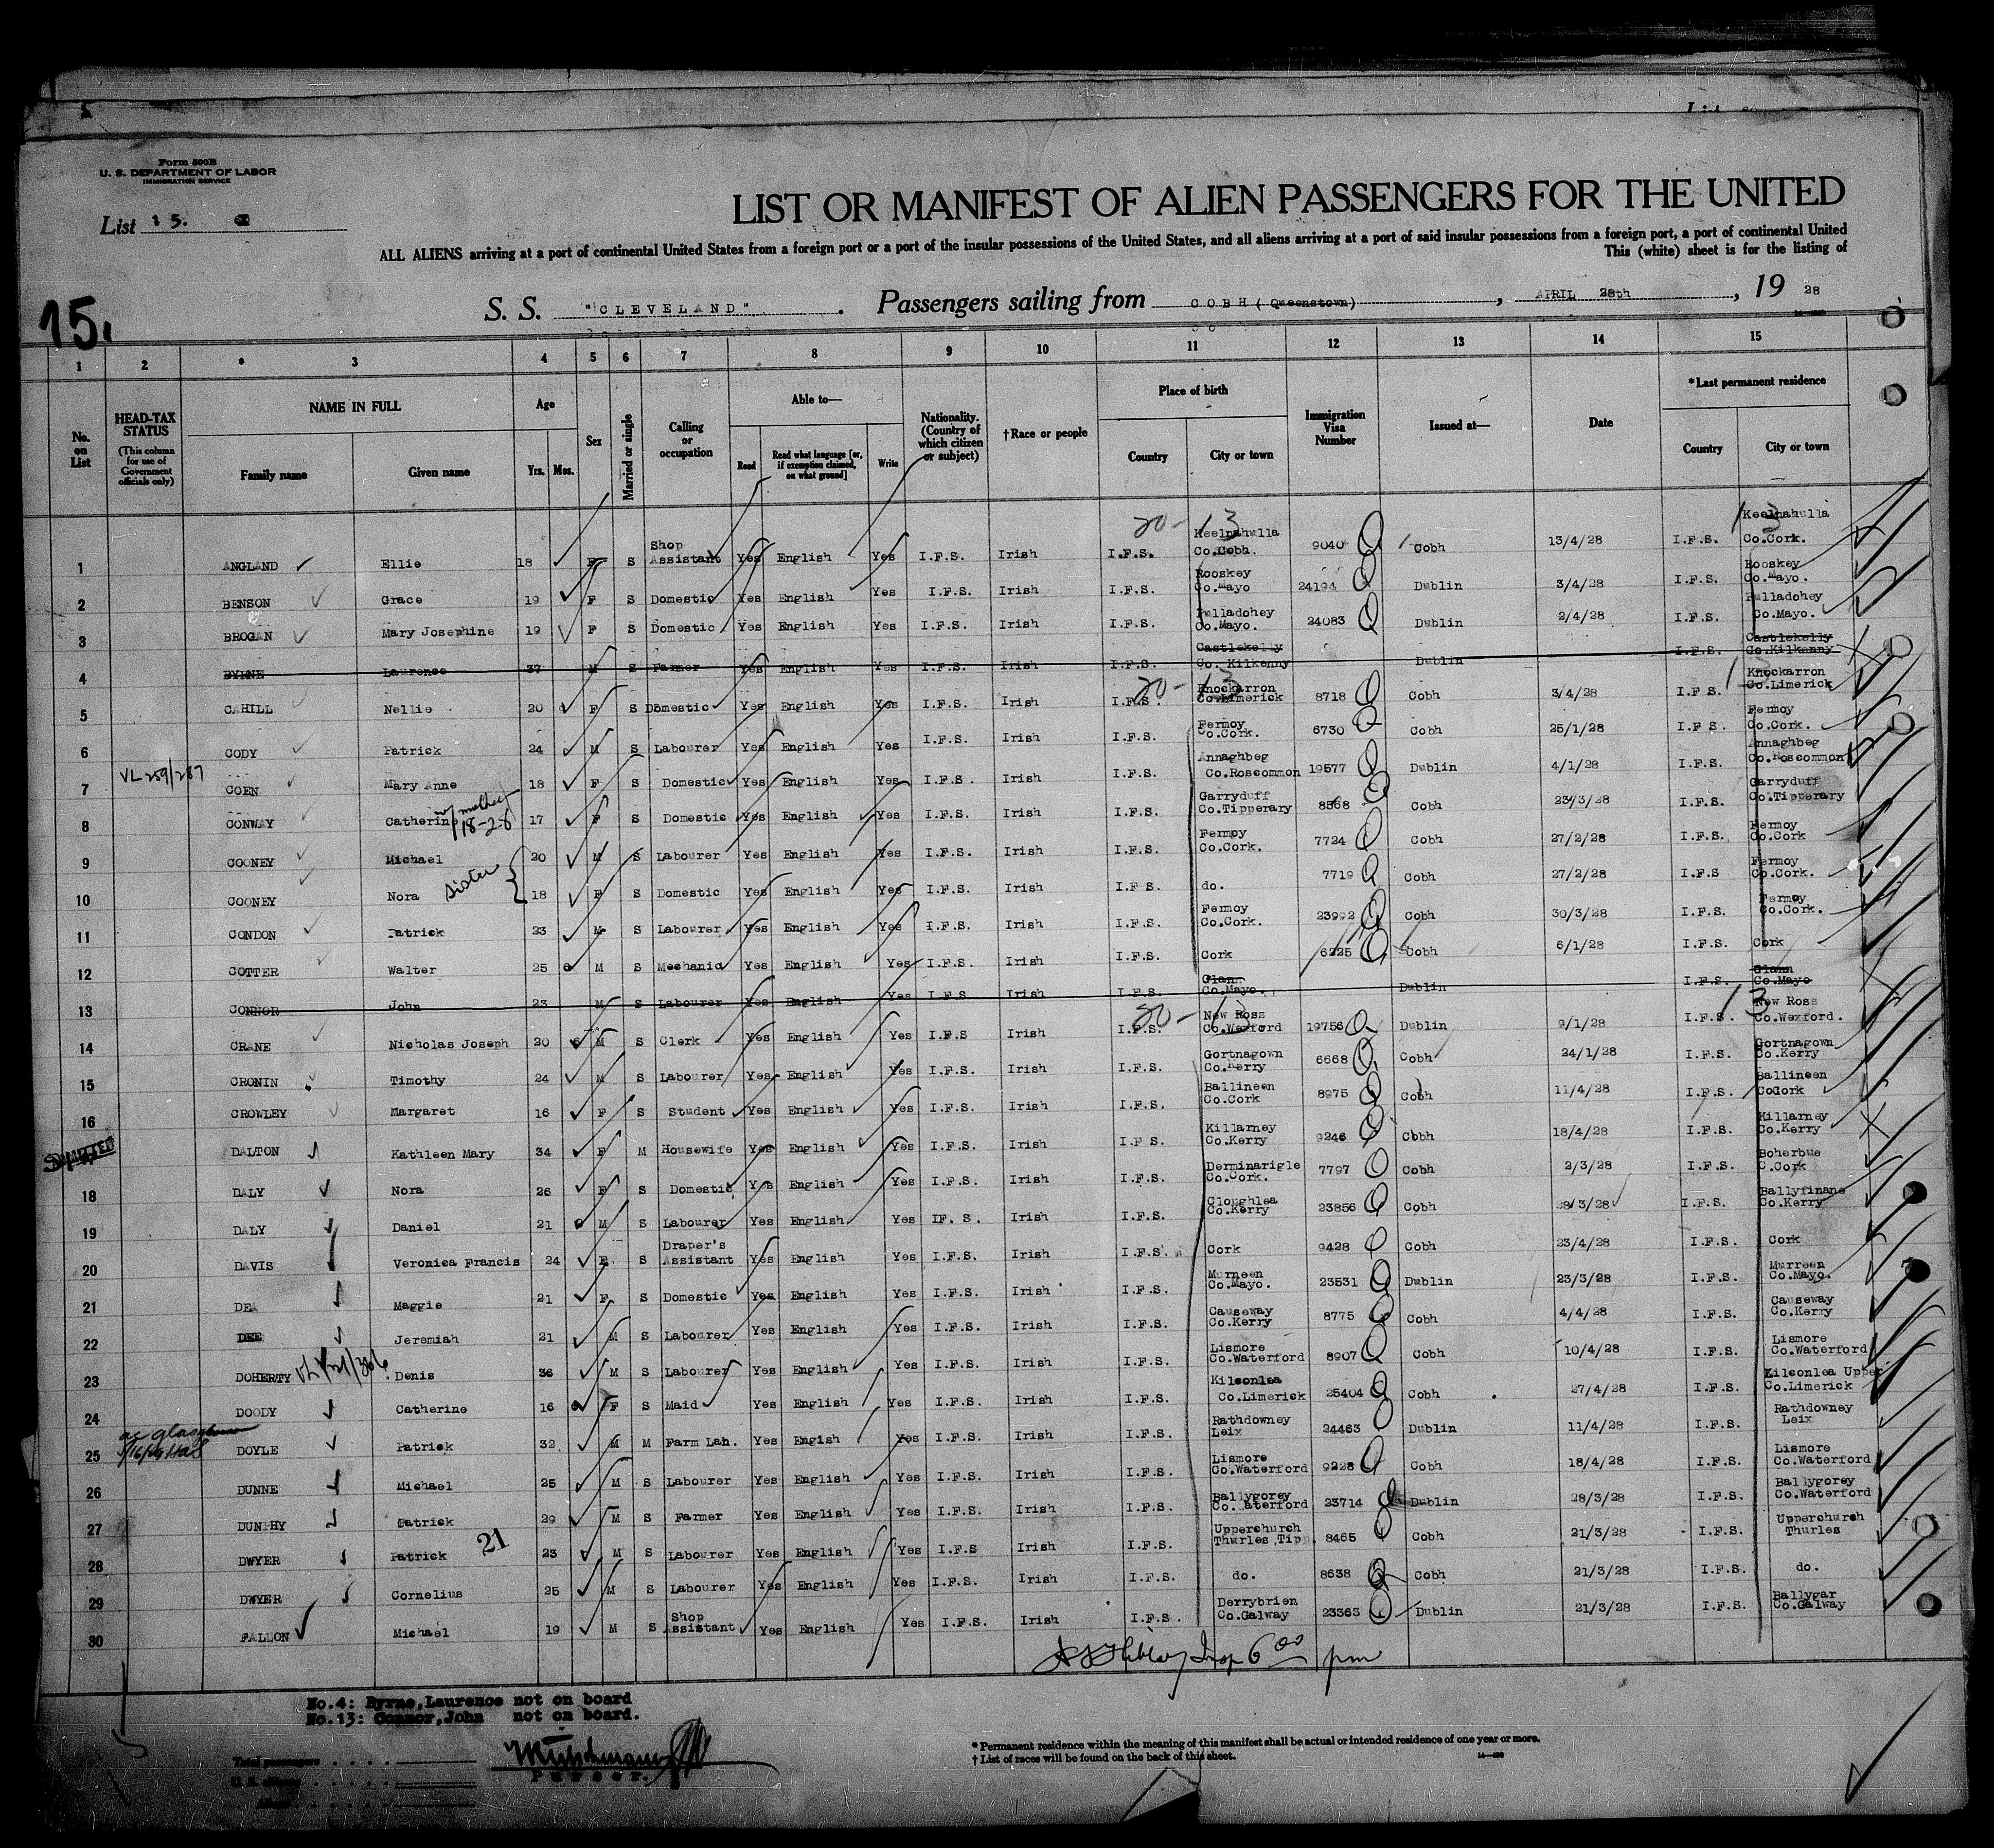 Form 500B
U. S. DEPARTMENT OF LABOR
IMMIGRATION SERVICE
List 15.
LIST OR MANIFEST OF ALIEN PASSENGERS FOR THE UNITED
ALL ALIENS arriving at a port of continental United States from a foreign port or a port of the insular possessions of the United States, and all aliens arriving at a port of said insular possessions from a foreign port, a port of continental United
This (white) sheet is for the listing of
15.
S. S. "CLEVELAND" . Passengers sailing from COBH (Queenstown) , APRIL 28th , 19 28
1 2 3 4 5 6 7 8 9 10 11 12 13 14 15
No. on List
HEAD-TAX STATUS
(This column for use of Government officials only)
NAME IN FULL
Family name
Given name
Age
Yrs. Mos.
Sex
Married or single
Calling or occupation
Able to—
Read
Read what language [or, if exemption claimed, on what ground]
Write
Nationality. (Country of which citizen or subject)
†Race or people
Place of birth
Country
City or town
Immigration Visa Number
Issued at—
Date
*Last permanent residence
Country
City or town
1 ANGLAND Ellie 18 F S Shop Assistant Yes English Yes I.F.S. Irish I.F.S. Keelnahulla Co.Cobh. 9040 Cobh 13/4/28 I.F.S. Keelnahulla Co.Cork.
2 BENSON Grace 19 F S Domestic Yes English Yes I.F.S. Irish I.F.S. Rooskey Co.Mayo 24194 Dublin 3/4/28 I.F.S. Rooskey Co.Mayo.
3 BROGAN Mary Josephine 19 F S Domestic Yes English Yes I.F.S. Irish I.F.S. Pulladohey Co.Mayo. 24083 Dublin 2/4/28 I.F.S. Pulladohey Co.Mayo.
4 BYRNE Laurence 37 M S Farmer Yes English Yes I.F.S. Irish I.F.S. Castlekelly Co. Kilkenny Dublin I.F.S. Castlekelly Co.Kilkenny
5 CAHILL Nellie 20 F S Domestic Yes English Yes I.F.S. Irish I.F.S. Knockarron Co.Limerick 8718 Cobh 3/4/28 I.F.S. Knockarron Co.Limerick
6 CODY Patrick 24 M S Labourer Yes English Yes I.F.S. Irish I.F.S. Fermoy Co.Cork. 6730 Cobh 25/1/28 I.F.S. Fermoy Co.Cork.
7 VL 259/287 COEN Mary Anne 18 F S Domestic Yes English Yes I.F.S. Irish I.F.S. Annaghbeg Co.Roscommon 19577 Dublin 4/1/28 I.F.S. Annaghbeg Co.Roscommon
8 CONWAY Catherine w/mother 18-2-8 17 F S Domestic Yes English Yes I.F.S. Irish I.F.S. Garryduff Co.Tipperary 8568 Cobh 23/3/28 I.F.S. Garryduff Co.Tipperary
9 COONEY Michael 20 M S Labourer Yes English Yes I.F.S. Irish I.F.S. Fermoy Co.Cork. 7724 Cobh 27/2/28 I.F.S. Fermoy Co.Cork
10 COONEY Nora sister 18 F S Domestic Yes English Yes I.F.S. Irish I.F.S. do. 7719 Cobh 27/2/28 I.F.S Fermoy Co.Cork.
11 CONDON Patrick 23 M S Labourer Yes English Yes I.F.S. Irish I.F.S. Fermoy Co.Cork. 23992 Cobh 30/3/28 I.F.S. Fermoy Co.Cork.
12 COTTER Walter 25 M S Mechanic Yes English Yes I.F.S. Irish I.F.S. Cork 6225 Cobh 6/1/28 I.F.S. Cork
13 CONNOR John 23 M S Labourer Yes English Yes I.F.S Irish I.F.S. Glann Co.Mayo. Dublin I.F.S. Glann Co.Mayo
14 CRANE Nicholas Joseph 20 M S Clerk Yes English Yes I.F.S Irish I.F.S. New Ross Co.Wexford 19756 Dublin 9/1/28 I.F.S. New Ross Co.Wexford.
15 CRONIN Timothy 24 M S Labourer Yes English Yes I.F.S. Irish I.F.S. Gortnagown Co.Kerry 6668 Cobh 24/1/28 I.F.S. Gortnagown Co.Kerry
16 CROWLEY Margaret 16 F S Student Yes English Yes I.F.S. Irish I.F.S. Ballineen Co.Cork 8975 Cobh 11/4/28 I.F.S. Ballineen CoCork
ADMITTED DALTON Kathleen Mary 34 F M Housewife Yes English Yes I.F.S. Irish I.F.S. Killarney Co.Kerry 9246 Cobh 18/4/28 I.F.S. Killarney Co.Kerry
18 DALY Nora 26 F S Domestic Yes English Yes I.F.S. Irish I.F.S. Derminarigle Co.Cork. 7797 Cobh 2/3/28 I.F.S. Boherbue C.Cork
19 DALY Daniel 21 M S Labourer Yes English Yes IF. S. Irish I.F.S. Cloughlea Co.Kerry 23856 Cobh 28/3/28 I.F.S. Ballyfinane Co.Kerry
20 DAVIS Veronica Francis 24 F S Draper's Assistant Yes English Yes I.F.S. Irish I.F.S. Cork 9428 Cobh 23/4/28 I.F.S. Cork
21 DEA Maggie 21 F S Domestic Yes English Yes I.F.S. Irish I.F.S. Murneen Co.Mayo. 23531 Dublin 23/3/28 I.F.S. Murreen Co.Mayo.
22 DEE Jeremiah 21 M S Labourer Yes English Yes I.F.S. Irish I.F.S. Causeway Co.Kerry 8775 Cobh 4/4/28 I.F.S. Causeway Co.Kerry
23 DOHERTY Denis 36 M S Labourer Yes English Yes I.F.S. Irish I.F.S. Lismore Co.Waterford 8907 Cobh 10/4/28 I.F.S. Lismore Co.Waterford
24 DOODY Catherine 16 F S Maid Yes English Yes I.F.S. Irish I.F.S. Kilconlea Co.Limerick 25404 Cobh 27/4/28 I.F.S. Kilconlea Upper Co.Limerick
25 DOYLE Patrick 32 M M Farm Lab. Yes Engish Yes I.F.S. Irish I.F.S. Rathdowney Leix 24463 Dublin 11/4/28 I.F.S. Rathdowney Leix
26 DUNNE Michael 25 M S Labourer Yes English Yes I.F.S. Irish I.F.S. Lismore Co.Waterford 9228 Cobh 18/4/28 I.F.S. Lismore Co.Waterford
27 DUNPHY Patrick 29 M S Farmer Yes English Yes I.F.S. Irish I.F.S. Ballygorey Co. Waterford 23714 Dublin 28/3/28 I.F.S. Ballygorey Co.Waterford
28 DWYER Patrick 21 23 M S Labourer Yes English Yes I.F.S Irish I.F.S. Upperchurch Thurles Tipp. 8465 Cobh 21/3/28 I.F.S. Upperchurch Thurles
29 DWYER Cornelius 25 M S Labourer Yes English Yes I.F.S. Irish I.F.S. do. 8638 Cobh 21/3/28 I.F.S. do.
30 FALLON Michael 19 M S Shop Assistant Yes English Yes I.F.S. Irish I.F.S. Derrybrien Co.Galway 23363 Dublin 21/3/28 I.F.S. Ballygar Co.Galway
6 00 pm
No.4: Byrne,Laurence not on board
No.13: Connor,John not on board.
Purser.
Total passengers
* Permanent residence within the meaning of this manifest shall be actual or intended residence of one year or more.
† List of races will be found on the back of this sheet.